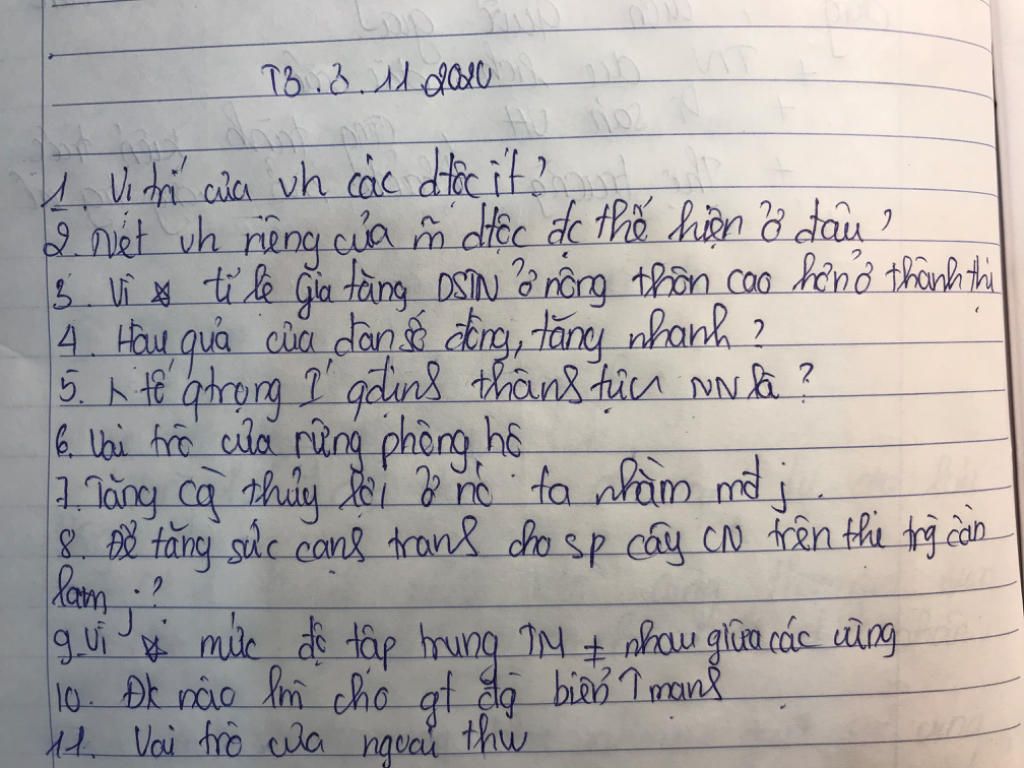 T3.3.11.2020
1. Vị trí của vh các dtộc ít?
2. Nét vh riêng của m̃ dtộc đc thể hiện ở đâu?
3. Vì tỉ lệ gia tăng DSTN ở nông thôn cao hơn ở thành thị
4. Hậu quả của dân số đông, tăng nhanh?
5. tế qtrọng I' qđịnh thành tựu NN là?
6. Vai trò của rừng phòng hộ
7. Tăng cg thủy lợi ở nc ta nhằm mđ j.
8. Để tăng sức cạnh tranh cho sp cây CN trên thị trg cần
làm j?
9. Vì mức độ tập trung TN ≠ nhau giữa các vùng
10. Đk nào lm̀ cho gt đg biển ↑ mạnh
11. Vai trò của ngoại thư